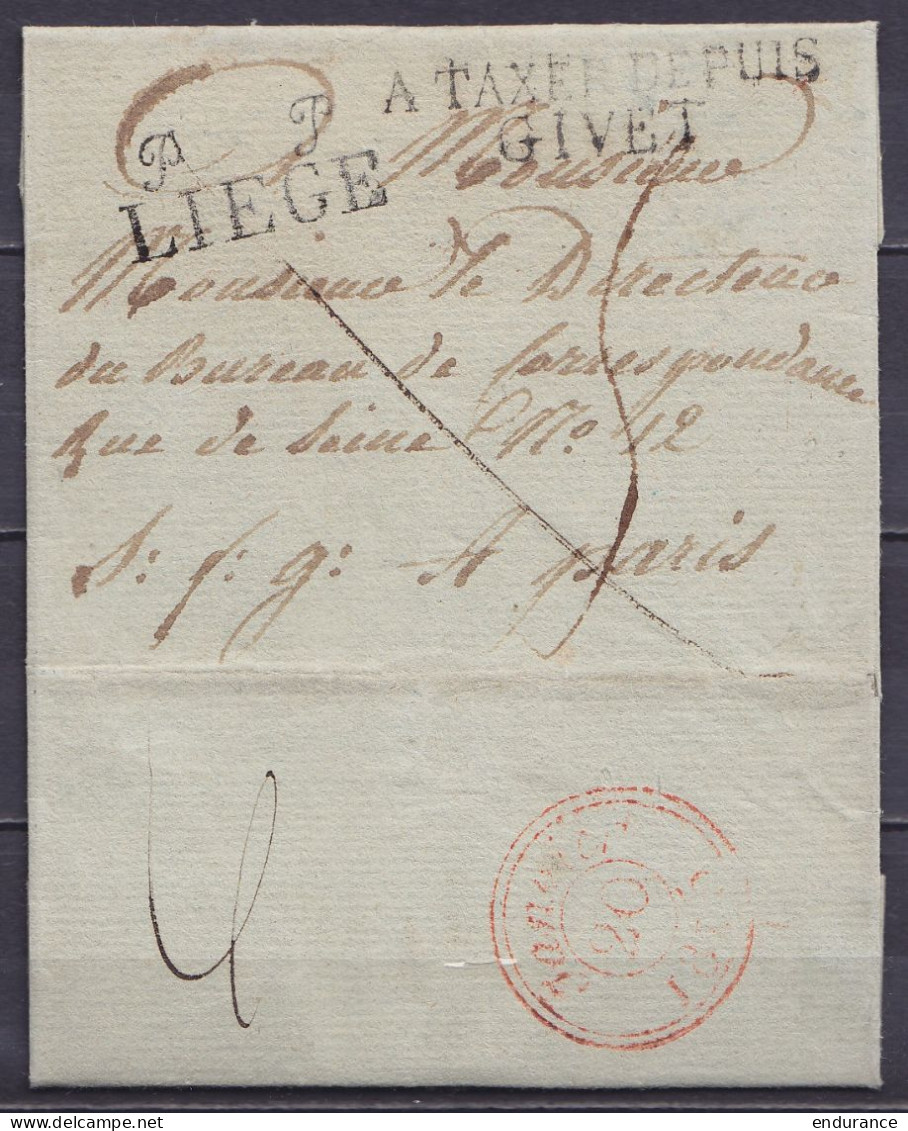 P P
LIEGE
A TAXER DEPUIS
GIVET
A Monsieur
Monsieur le Directeur
du Bureau de Correspondance
Rue de Seine No. 12
S: f: g: A paris
4
20
delcampe.net
endurance